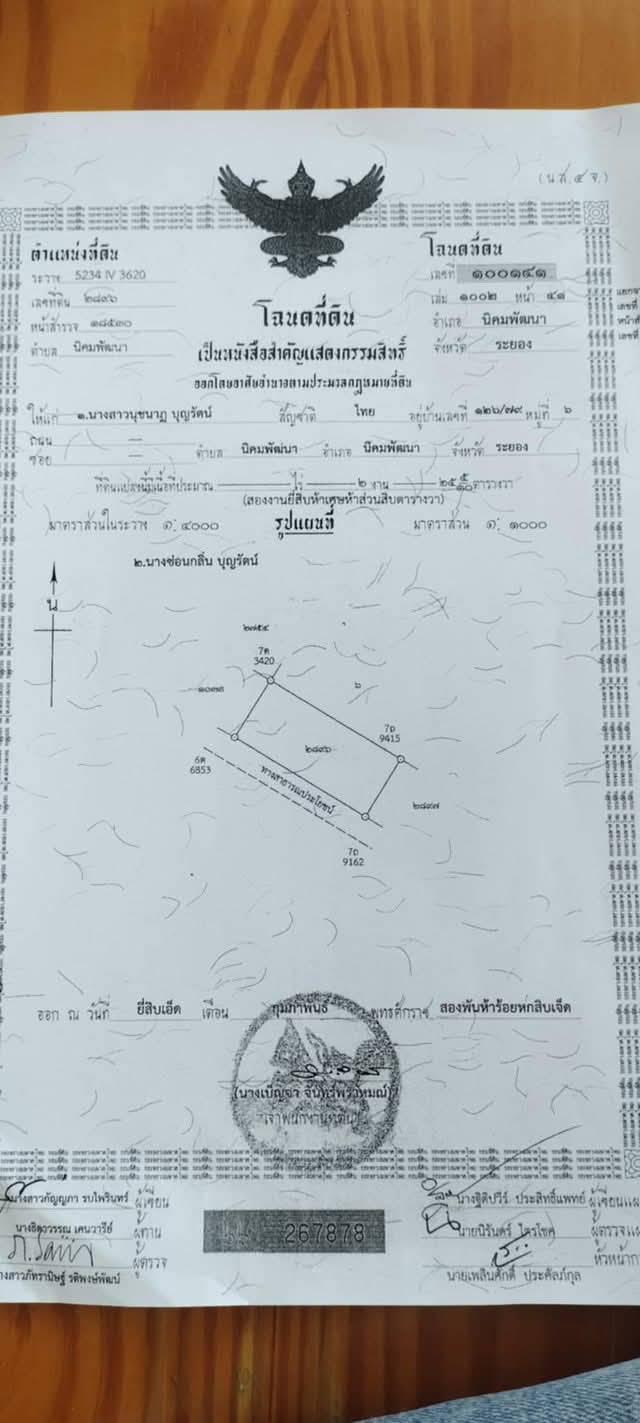 (น.ส.๔ จ.)
ตำแหน่งที่ดิน
ระวาง 5234 IV 3620
เลขที่ดิน ๒๘๙๖
หน้าสำรวจ ๑๘๕๓๐
ตำบล นิคมพัฒนา
โฉนดที่ดิน
เลขที่ ๑๐๐๑๔๑
เล่ม ๑๐๐๒ หน้า ๔๑
อำเภอ นิคมพัฒนา
จังหวัด ระยอง
โฉนดที่ดิน
เป็นหนังสือสำคัญแสดงกรรมสิทธิ์
ออกโดยอาศัยอำนาจตามประมวลกฎหมายที่ดิน
ให้แก่ ๑.นางสาวนุชนาฏ บุญรัตน์ สัญชาติ ไทย อยู่บ้านเลขที่ ๑๒๖/๗๙ หมู่ที่ ๖
ถนน —
ซอย — ตำบล นิคมพัฒนา อำเภอ นิคมพัฒนา จังหวัด ระยอง
ที่ดินแปลงนี้มีเนื้อที่ประมาณ — ไร่ ๒ งาน ๒๕ ๕/๑๐ ตารางวา
(สองงานยี่สิบห้าเศษห้าส่วนสิบตารางวา)
มาตราส่วนในระวาง ๑: ๔๐๐๐ รูปแผนที่ มาตราส่วน ๑: ๑๐๐๐
๒.นางซ่อนกลิ่น บุญรัตน์
น
๒๗๕๔
7ต
3420
๖
7ถ
9415
๒๘๙๖
6ต
6853
ทางสาธารณประโยชน์
๒๘๙๗
7ถ
9162
ออก ณ วันที่ ยี่สิบเอ็ด เดือน กุมภาพันธ์ พุทธศักราช สองพันห้าร้อยหกสิบเจ็ด
(นางเบ็ญจา จันทร์พราหมณ์)
เจ้าพนักงานที่ดิน
นางสาวกัญญภา รบไพรินทร์ ผู้เขียน
ผู้ทาน
ผู้ตรวจ
267878
นางฐิติปวีร์ ประสิทธิ์แพทย์ ผู้เขียนแผ
นายนิรันดร์ ไตรโชค ผู้ตรวจแผ
หัวหน้าก